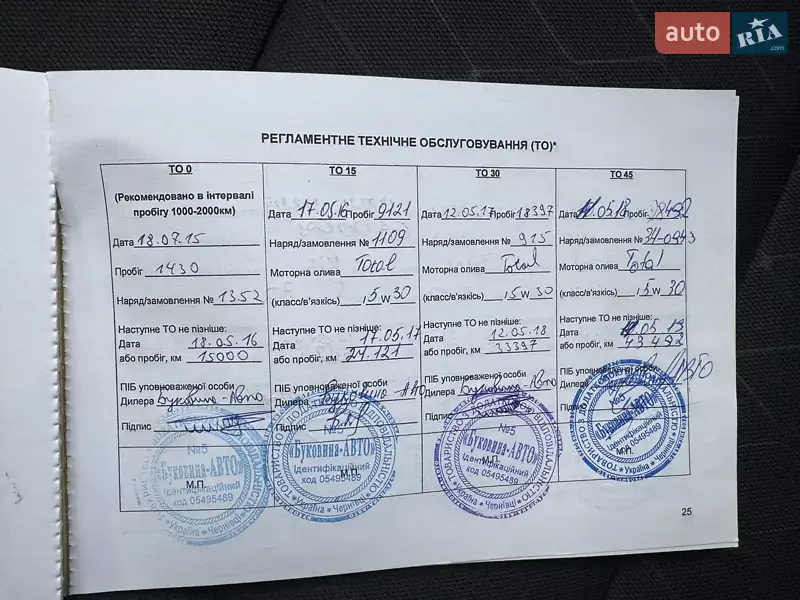 auto RIA.com
РЕГЛАМЕНТНЕ ТЕХНІЧНЕ ОБСЛУГОВУВАННЯ (ТО)*
ТО 0
(Рекомендовано в інтервалі
пробігу 1000-2000км)
Дата 18.07.15
Пробіг 1430
Наряд/замовлення № 1352
Наступне ТО не пізніше:
Дата 18.05.16
або пробіг, км 15000
ПІБ уповноваженої особи
Дилера Буковина-Авто
Підпис
№5
«Буковина-АВТО»
Ідентифікаційний
код 05495489
М.П.
Україна * Чернівці
ТО 15
Дата 17.05.16 Пробіг 9121
Наряд/замовлення № 1109
Моторна олива Total
(класс/в'язкість) 5w30
Наступне ТО не пізніше:
Дата 17.05.17
або пробіг, км 24.121
ПІБ уповноваженої особи
Дилера Буковина-Авто
Підпис
№5
«Буковина-АВТО»
Ідентифікаційний
код 05495489
М.П.
Україна * Чернівці
ТО 30
Дата 12.05.17 Пробіг 18397
Наряд/замовлення № 915
Моторна олива Total
(класс/в'язкість) 5w30
Наступне ТО не пізніше:
Дата 12.05.18
або пробіг, км 33397
ПІБ уповноваженої особи
Дилера Буковина-Авто
Підпис
«Буковина-АВТО»
Ідентифікаційний
код 05495489
М.П.
Україна * Чернівці
ТО 45
Дата .05.18 Пробіг 28492
Наряд/замовлення №
Моторна олива Total
(класс/в'язкість) 5w30
Наступне ТО не пізніше:
Дата .05.19
або пробіг, км 43492
ПІБ уповноваженої особи
Дилера
Підпис
№5
«Буковина-АВТО»
Ідентифікаційний
код 05495489
М.П.
Україна * Чернівці
25